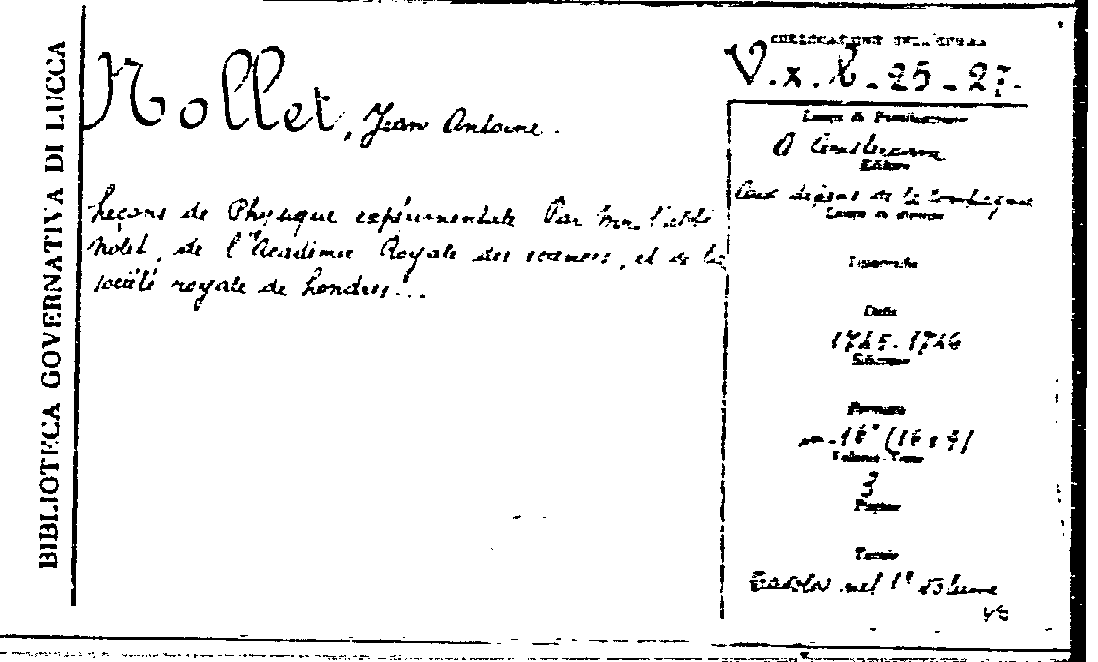 BIBLIOTECA GOVERNATIVA DI LUCCA
Nollet, Jean Antoine.
Leçons de Physique expérimentale Par Mr. l'abbé
Nolet, de l'Académie Royale des sciences, et de la
société royale de Londres...
COLLOCAZIONE DELL'OPERA
V.x.b-25-27.
Luogo di Pubblicazione
A Amsterdam
Editore
Aux dépens de la Compagnie
Luogo di stampa
Tipografia
Data
1745-1746
Edizione
Formato
in-16° (16x9)
Volumi-Tomi
3
Pagine
Tavole
Tavole nel 1° volume